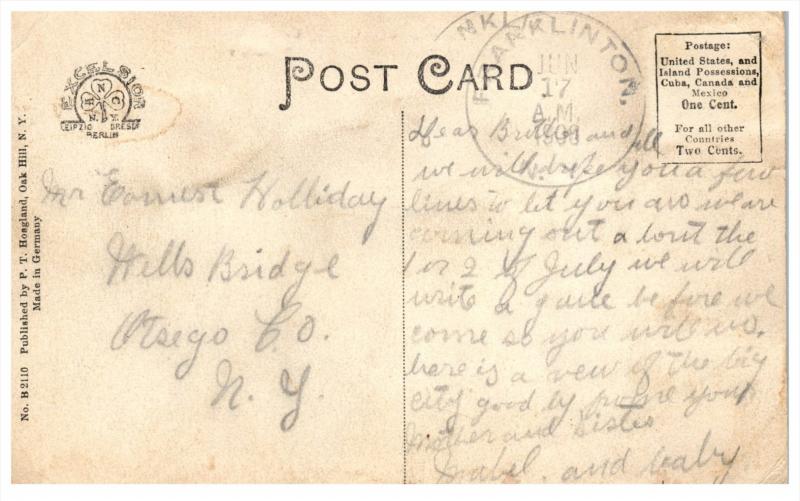 POST CARD
EXCELSIOR
H N C
N. Y.
LEIPZIG DRESD
BERLIN
FRANKLINTON,
JUN
17
A.M.
N.Y.
NKLI
Postage:
United States, and
Island Possessions,
Cuba, Canada and
Mexico
One Cent.
For all other
Countries
Two Cents.
No. B 2110 Published by P. T. Hoagland, Oak Hill, N. Y.
Made in Germany
Mr Earnest Holliday
Wells Bridge
Otsego Co.
N. Y.
Dear Brother and all
we will drop you a few
lines to let you no we are
comming out a bout the
1 or 2 of July we will
write a gane be fore we
come so you will no.
here is a view of the big
city good by from your
Mother and Sister
Mabel. and baby